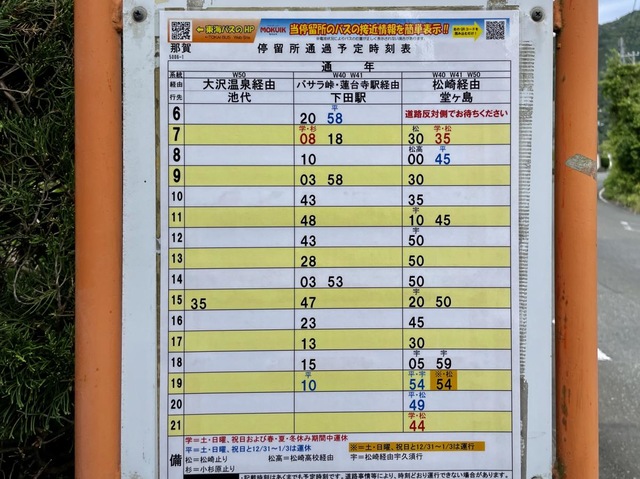 ← 東海バスのHP
MOKUIK 当停留所のバスの接近情報を簡単表示!!
那賀
停留所通過予定時刻表
通 年
系統 W50 W40 W41 W40 W41 W50
経由 大沢温泉経由 バサラ峠・蓮台寺駅経由 松崎経由
行先 池代 下田駅 堂ヶ島
道路反対側でお待ちください
平
6 20 58
学・杉 松 学・松
7 08 18 30 35
松高 平
8 10 00 45
9 03 58 30
10 43 35
宇
11 48 10 45
宇
12 43 50
13 28 50
14 03 53 50
宇
15 35 47 20 50
16 23 45
17 13 30
宇 宇
18 15 05 59
平 平・宇 ※・松
19 10 54 54
平・松
20 49
学・松
21 44
学=土・日曜、祝日および春・夏・冬休み期間中運休
平=土・日曜、祝日と12/31～1/3は運休 ※=土・日曜、祝日と12/31～1/3は運行
備 松=松崎止り 松高=松崎高校経由 宇=松崎経由宇久須行
杉=小杉原止り
記載時刻はあくまでも予定時刻です。道路事情等により、時刻どおり運行できない場合があります。